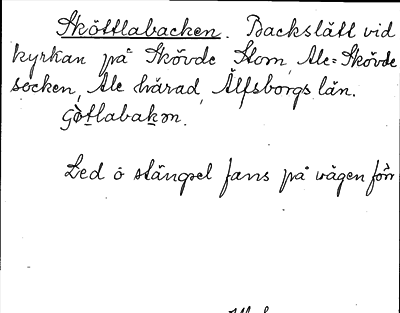 Sköttlabacken. Backslätt vid
kyrkan på Skövde Stom, Ale=Skövde
socken, Ale härad, Älfsborgs län.
Led o stängsel fans på vägen förr